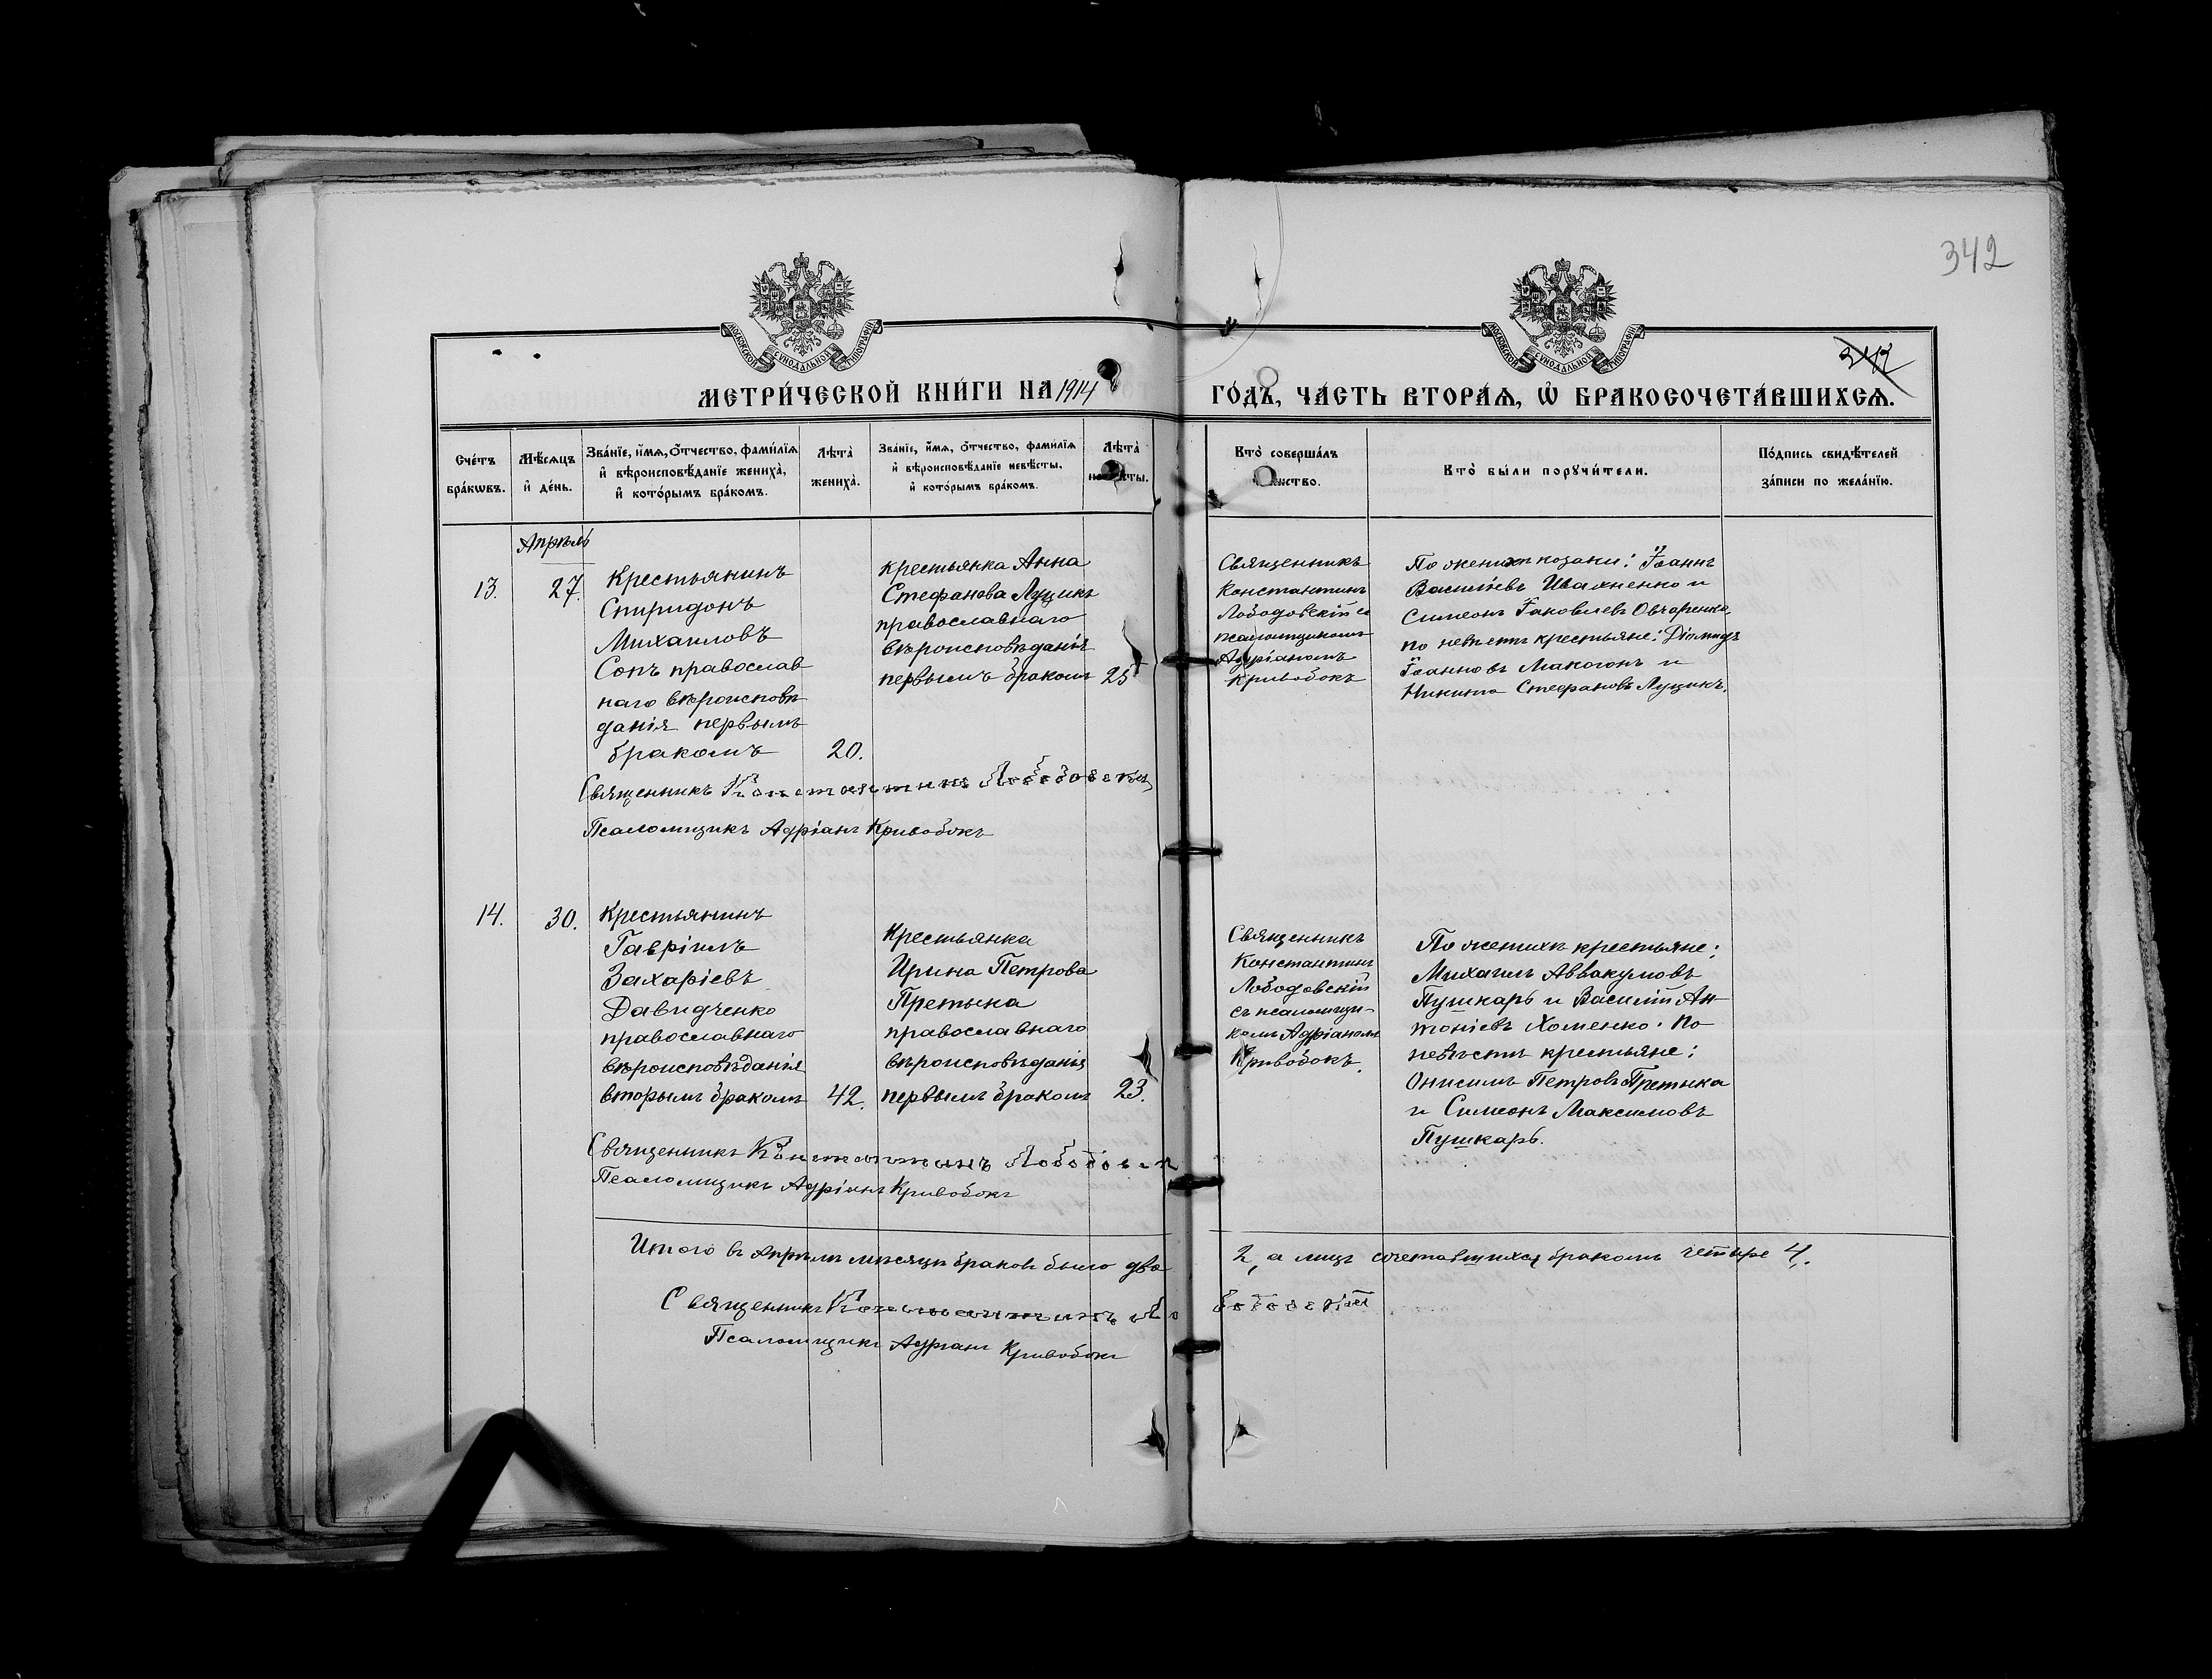 342
МОСКОВСКОЙ СѴНОДАЛЬНОЙ ТИПОГРАФІИ
МОСКОВСКОЙ СѴНОДАЛЬНОЙ ТИПОГРАФІИ
342
МЕТРИ́ЧЕСКОЙ КНИ́ГИ НА 1914 ГО́ДЪ, ЧА́СТЬ ВТОРА́Ѧ, Ѽ БРАКОСОЧЕТА́ВШИХСѦ.
Сче́тъ бра́кѡвъ.
Мѣ́сѧцъ и҆ де́нь.
Зва́нїе, и҆́мѧ, о҆́тчество, фами́лїѧ и҆ вѣроисповѣ́данїе жениха̀, и҆ кото́рымъ бра́комъ.
Лѣ́та̀ жениха̀.
Зва́нїе, и҆́мѧ, о҆́тчество, фами́лїѧ и҆ вѣроисповѣ́данїе невѣ́сты, и҆ кото́рымъ бра́комъ.
Лѣ́та̀ невѣ́сты.
Кто̀ соверша́лъ таинство.
Кто̀ бы́ли порꙋчи́тели.
По́дпись свидѣ́телей за́писи по жела́нїю.
Апрѣль
13.
27.
Крестьянинъ
Спиридонъ
Михаиловъ
Сопъ православ
наго вѣроисповѣ
данія первымъ
бракомъ
20.
крестьянка Анна
Стефанова Лущикъ
православнаго
вѣроисповѣданія
первымъ бракомъ
25
Священникъ
Константинъ
Лободовскій съ
псаломщикомъ
Адріаномъ
Кривобокъ
По женихѣ козаки: Іоаннъ
Васильевъ Ивахненко и
Симеонъ Іаковлевъ Овчаренко,
по невѣстѣ крестьяне: Діомидъ
Іоанновъ Макогонъ и
Никита Стефановъ Лущикъ.
Священникъ Константинъ Лободовскій
Псаломщикъ Адріанъ Кривобокъ
14.
30.
Крестьянинъ
Гавріилъ
Захаріевъ
Давидченко
православнаго
вѣроисповѣданія
вторымъ бракомъ
42.
Крестьянка
Ирина Петрова
Претыка
православнаго
вѣроисповѣданія
первымъ бракомъ
23.
Священникъ
Константинъ
Лободовскій
съ псаломщи-
комъ Адріаномъ
Кривобокъ.
По женихѣ крестьяне:
Михаилъ Аввакумовъ
Пушкарь и Василій Ан-
тоніевъ Хоменко. По
невѣстѣ крестьяне:
Онисимъ Петровъ Претыка
и Симеонъ Максимовъ
Пушкарь.
Священникъ Константинъ Лободовскій
Псаломщикъ Адріанъ Кривобокъ
Итого въ Апрѣлѣ мѣсяцѣ браковъ было два 2, а лицъ сочетавшихся бракомъ четыре 4.
Священникъ Константинъ Лободовскій
Псаломщикъ Адріанъ Кривобокъ